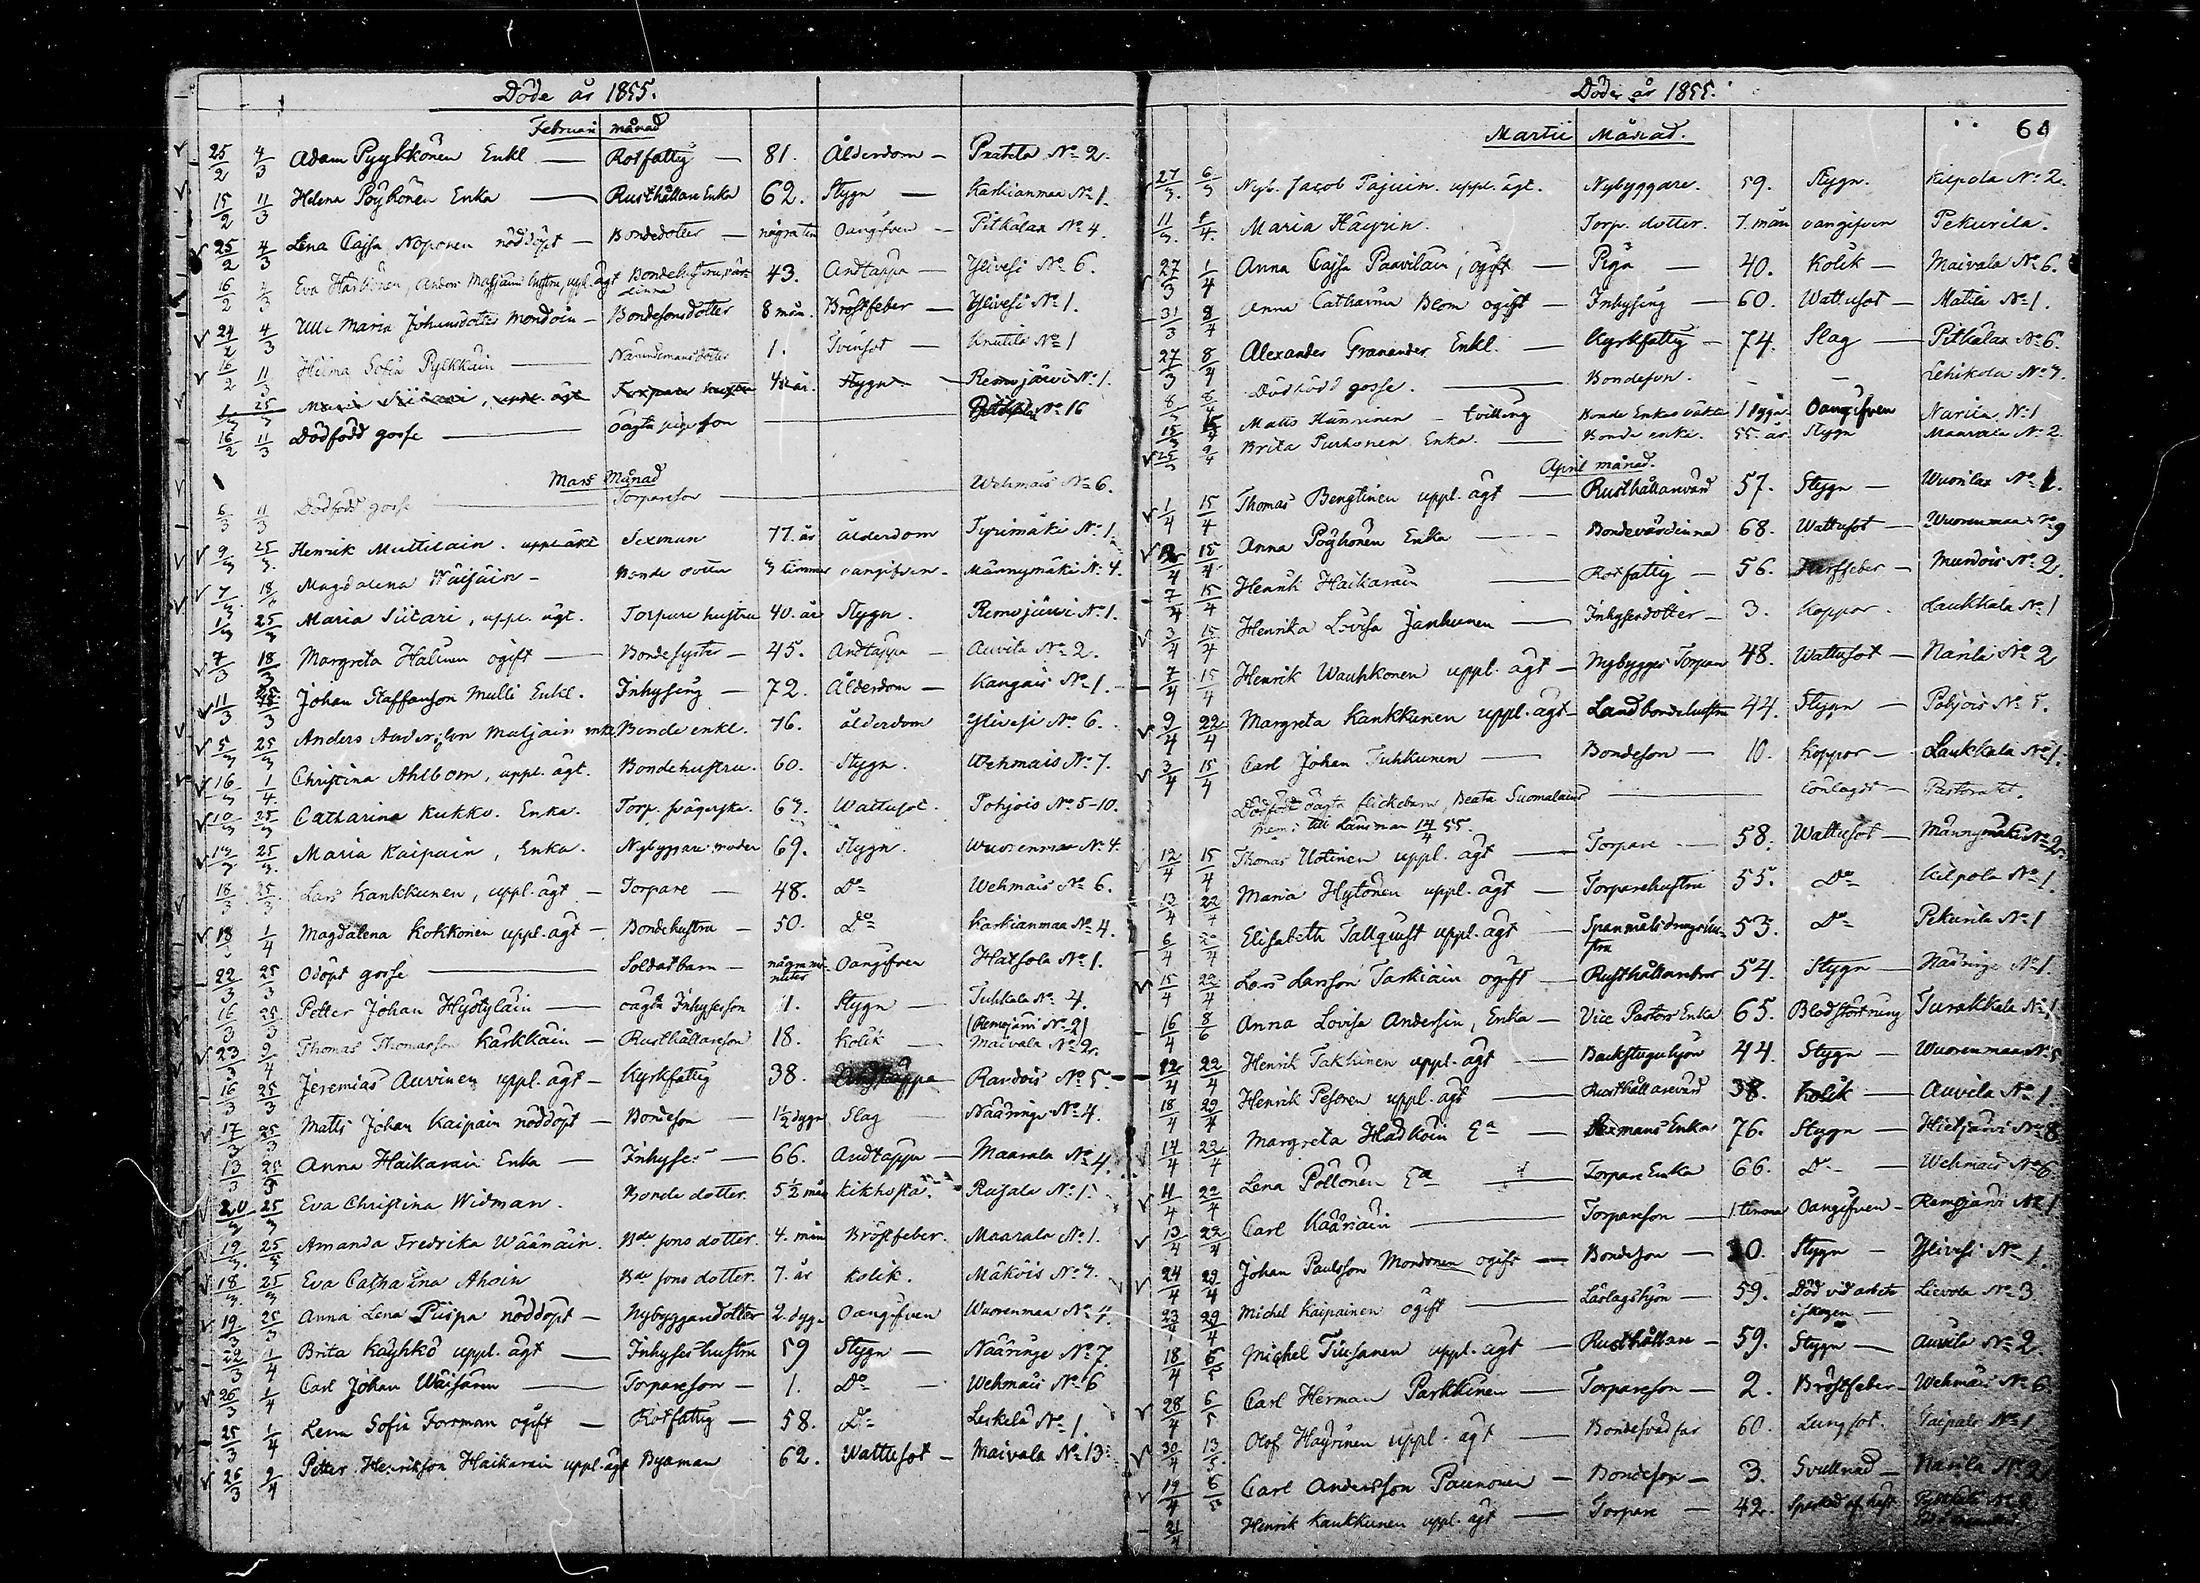 Döde år 1855.
Februari månad
25/2 4/3 Adam Pyykkönen Enkl. Rotfattig 81. Ålderdom Prabela No 2.
15/2 11/3 Helena Pöyhönen Enka Rusthållare Enka 62. Stygn Karkianmaa No 1.
25/2 4/3 Lena Cajsa Noponen nöddöpt Bondedotter några tim Oangifven Pitkälax No 4.
16/2 4/3 Eva Härkönen, Anders hustru, uppl. ägt Bondehustru 43. Andtäppa Ylivesi No 6.
24/2 4/3 Ulla Maria Johansdotter Mondoin Bondesonsdotter 8 mån. Bröstfeber Ylivesi No 1.
16/2 11/3 Hilma Sofia Pylkkäin Nämndemansdotter 1. Tvinsot Knutila No 1
1/3 25/3 Maria Siitari, uppl. ägt Torpare hustru 40 år. Stygn Remojärvi No 1.
16/2 11/3 Dödfödd gosse oägta pigoson No 16
Mars Månad
6/3 11/3 Dödfödd gosse Torpareson Wehmais No 6.
9/3 25/3 Henrik Muttilain. uppl. ägt Sexman 77. år ålderdom Tyrimäki No 1.
7/3 18/3 Magdalena Wäisäin Bonde dotter 3 timmar oangifven Männymäki No 4.
1/3 25/3 Maria Siitari, uppl. ägt. Torpare hustru 40. år Stygn. Remojärvi No 1.
7/3 18/3 Margreta Halinen ogift Bondesyster 45. Andtäppa Auvila No 2.
11/3 25/3 Johan Staffansson Multi Enkl. Inhysing 72. Ålderdom Kangais No 1.
5/3 25/3 Anders Andersson Matjain enkl Bonde enkl. 76. ålderdom Ylivesi No 6.
16/3 1/4 Christina Ahlbom, uppl. ägt. Bondehustru. 60. Stygn. Wehmais No 7.
10/3 25/3 Catharina Kukko. Enka. Torp. svägerska 63. Wattusot. Pohjois No 5-10.
13/3 25/3 Maria Kaipain, Enka. Nybyggare moder 69. Stygn. Wuorenmaa No 4.
18/3 25/3 Lars Kankkunen, uppl. ägt Torpare 48. Do Wehmais No 6.
18/3 1/4 Magdalena Kokkonen uppl. ägt Bondehustru 50. Do Karkianmaa No 4.
22/3 25/3 Odöpt gosse Soldatbarn några minuter Oangifven Hatsola No 1.
16/3 25/3 Petter Johan Hyötyläin oägta Inhysesson 11. Stygn Tuhkala No 4.
(Remojärvi No 2)
23/3 9/4 Thomas Thomasson Kärkkäin Rusthållareson 18. Kolik Maivala No 2.
16/3 25/3 Jeremias Auvinen uppl. ägt Kyrkfattig 38. Andtäppa Randois No 5
17/3 25/3 Matts Johan Kaipain nöddöpt Bondeson 1½ dygn Slag Nääringi No 4.
13/3 25/3 Anna Haikarain Enka Inhyses 66. Andtäppa Maarala No 4.
20/3 25/3 Eva Christina Widman. Bonde dotter 5½ mån kikhosta. Ruisala No 1.
19/3 25/3 Amanda Fredrika Wäänäin. Bde sons dotter. 4. mån Bröstfeber. Maarala No 1.
18/3 25/3 Eva Catharina Ahoin Bde sons dotter. 7. år kolik. Mäkois No 3.
19/3 25/3 Anna Lena Puispa nöddöpt Nybyggaredotter 2. dygn Oangifven Wuorenmaa No 4.
22/3 1/4 Brita Käyhkö uppl. ägt Inhyses hustru 59 Stygn Nääringi No 7.
26/3 1/4 Carl Johan Wäisänen Torpareson 1. Do Wehmais No 6
25/3 1/4 Lena Sofia Forsman ogift Rotfattig 58. Do Leskelä No 1.
26/3 9/4 Petter Henriksson Haikarain uppl. ägt Byaman 62. Wattusot Maivala No 13.
Döde år 1855.
64
Martii Månad.
27/3 6/3 Nyb. Jacob Pajuin. uppl. ägt. Nybyggare. 59. Stygn. Kilpola No 2.
11/3 1/4 Maria Häyrin. Torp. dotter. 7. mån oangifven Pekurila.
27/3 1/4 Anna Cajsa Paavilain, ogift Piga 40. Kolik Maivala No 6.
31/3 8/4 Anna Catharina Blom ogift Inhysing 60. Wattusot Matila No 1.
27/3 8/4 Alexander Granander Enkl. Kyrkfattig 74. Slag Pitkälax No 6.
8/3 Dödfödd gosse. Bondeson. Lehikola No 3.
15/3 Matts Hänninen tvilling Bonde Enkas oäkta 1 dygn Oangifven Narila No 1
25/3 9/4 Brita Purhonen Enka. Bonde enka. 55. år Stygn Maarala No 2.
April månad.
1/4 15/4 Thomas Bengtinen uppl. ägt Rusthållarevärd 57. Stygn Wuorilax No 1.
15/4 Anna Pöyhönen Enka Bondevärdinna 68. Wattusot Wuorenmaa No 9
7/4 15/4 Henrik Haikarain Rotfattig 56. Mundois No 2.
3/4 15/4 Henrika Lovisa Janhunen Inhysesdotter 3. Koppor. Laukkala No 1
7/4 15/4 Henrik Wauhkonen uppl. ägt Nybygges Torpare 48. Wattusot Narila No 2
9/4 22/4 Margreta Kankkunen uppl. ägt Landbondehustru 44. Stygn Pohjois No 5.
3/4 15/4 Carl Johan Tuhkunen Bondeson 10. Koppor Laukkala No 1.
Dödfödt oägta flickebarn, Beata Suomalains Pastoratet.
till Länsman 14/4 55.
12/4 15/4 Thomas Uotinen uppl. ägt Torpare 58. Wattusot Männymäki No 2.
13/4 22/4 Maria Hytönen uppl. ägt Torparehustru 55. Do Kilpola No 1.
6/4 Elisabeth Tallqust uppl. ägt Spanmålsdrägshustru 53. Do Pekurila No 1
15/4 22/4 Lars Larsson Tarkiain ogift Rusthållarebror 54. Stygn Nääringi No 1.
16/4 8/6 Anna Lovisa Andersin, Enka Vice Pastors Enka 65. Blodstörtning Turakkala No 1
12/4 22/4 Henrik Takkinen uppl. ägt Backstuguhjon 44. Stygn Wuorenmaa No 5
18/4 29/4 Henrik Pesonen uppl. ägt Rusthållarevärd 38. Kolik Auvila No 1.
14/4 22/4 Margreta Hadkoin Ea Sexmans Enka 76. Stygn Hietjärvi No 8
11/4 22/4 Lena Pöllönen Ea Torpare Enka 66. Do Wehmais No 6
13/4 22/4 Carl Kääriäin Torpareson 1. timma Oangifven Remojärvi No 1
24/4 29/4 Johan Paulsson Mondonen ogift Bondeson 20. Stygn Ylivesi No 1.
23/4 29/4 Michel Kaipainen ogift Låglagshjon 59. Död vid arbete i skogen Lievola No 3
18/4 6/5 Michel Tiusanen uppl. ägt Rusthållare 59. Stygn Auvila No 2.
28/4 6/5 Carl Herman Parkkinen Torpareson 2. Bröstfeber Wehmais No 6
30/4 13/5 Olof Häyrinen uppl. ägt Bondesvärfar 60. Lungsot. Paipale No 1
19/4 6/5 Carl Andersson Paunonen Bondeson 3. Svullnad Narila No 2
21/4 Henrik Kaukkunen uppl. ägt Torpare 42. Sparkad af häst